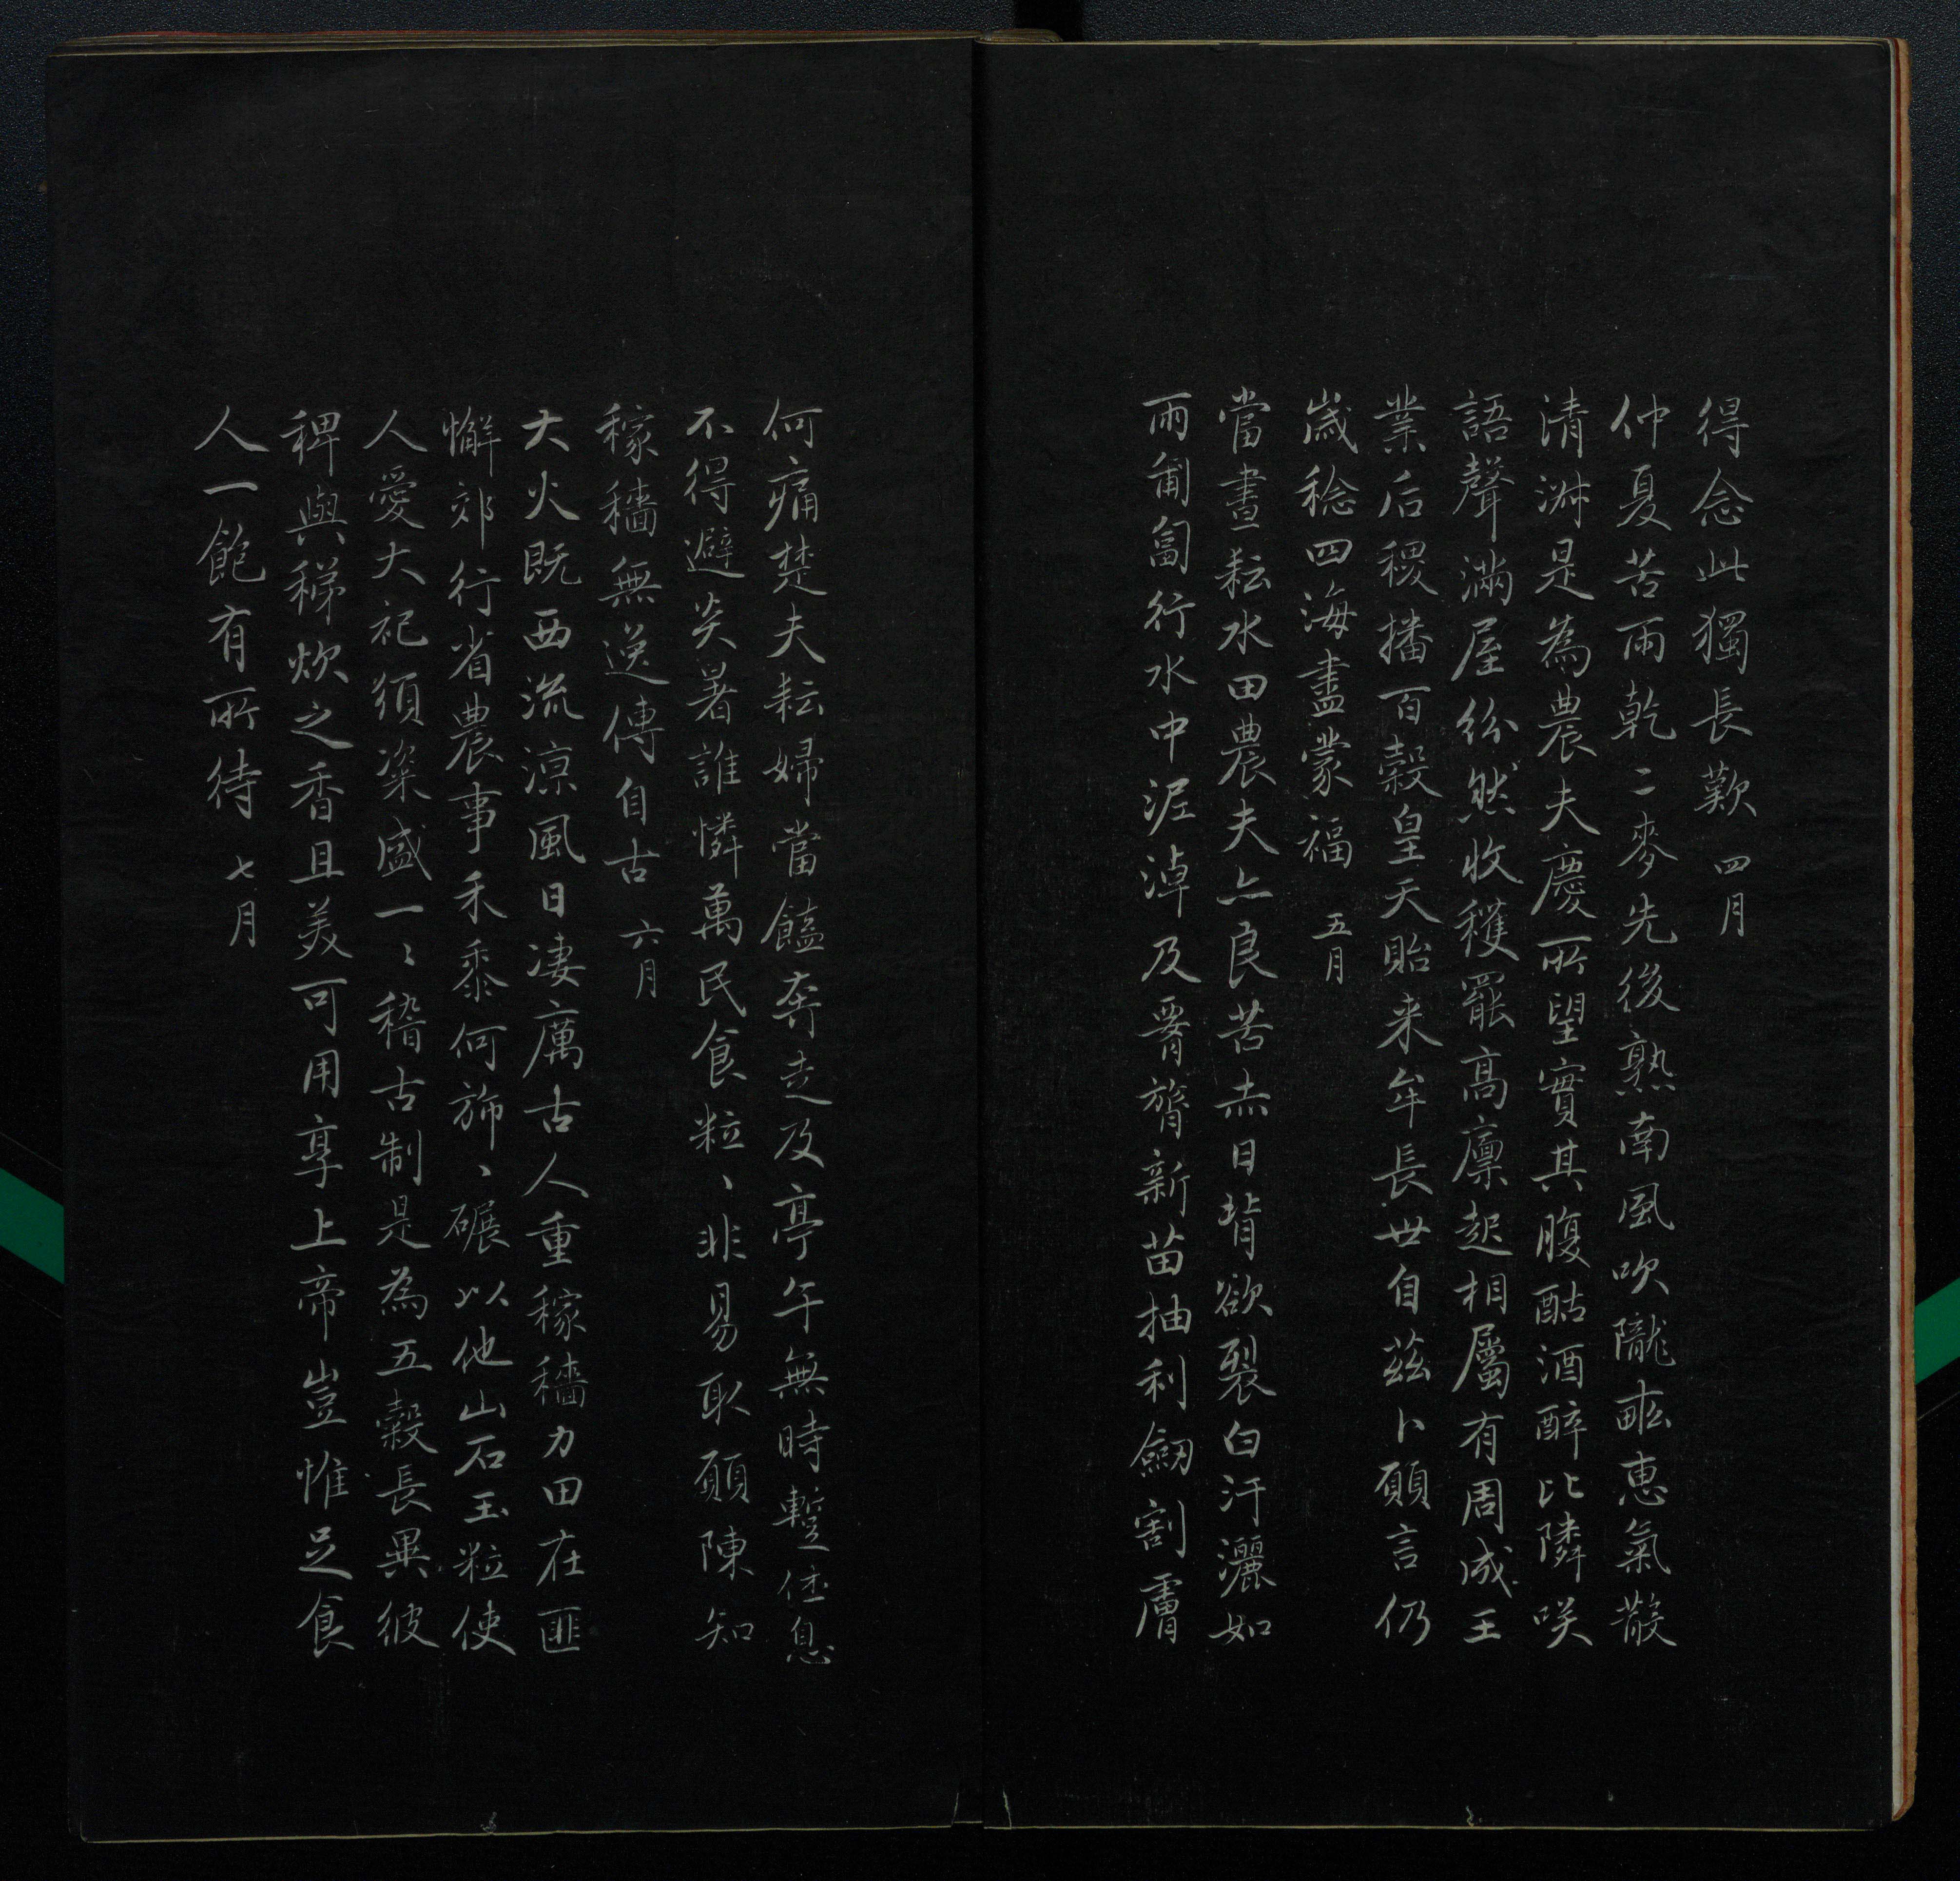 得念此獨長歎 四月
仲夏苦雨乾二麥先後熟南風吹隴畝惠氣散
清淑是為農夫慶所望實其腹酤酒醉比隣咲
語聲滿屋紛然收穫罷高廩起相屬有周成王
業后稷播百穀皇天貽来牟長世自茲卜願言仍
歲稔四海盡蒙福 五月
當晝耘水田農夫亦良苦赤日背欲裂白汗灑如
雨匍匐行水中泥淖及腰膂新苗抽利劒割膚
何痛楚夫耘婦當饁奔走及亭午無時暫住息
不得避炎暑誰憐萬民食粒〻非易取願陳知
稼穡無逸傳自古 六月
大火既西流涼風日凄厲古人重稼穡力田在匪
懈郊行省農事禾黍何旆〻碾以他山石玉粒使
人愛大祀須粢盛一〻稽古制是為五穀長異彼
稗與稊炊之香且美可用享上帝豈惟足食
人一飽有所待 七月